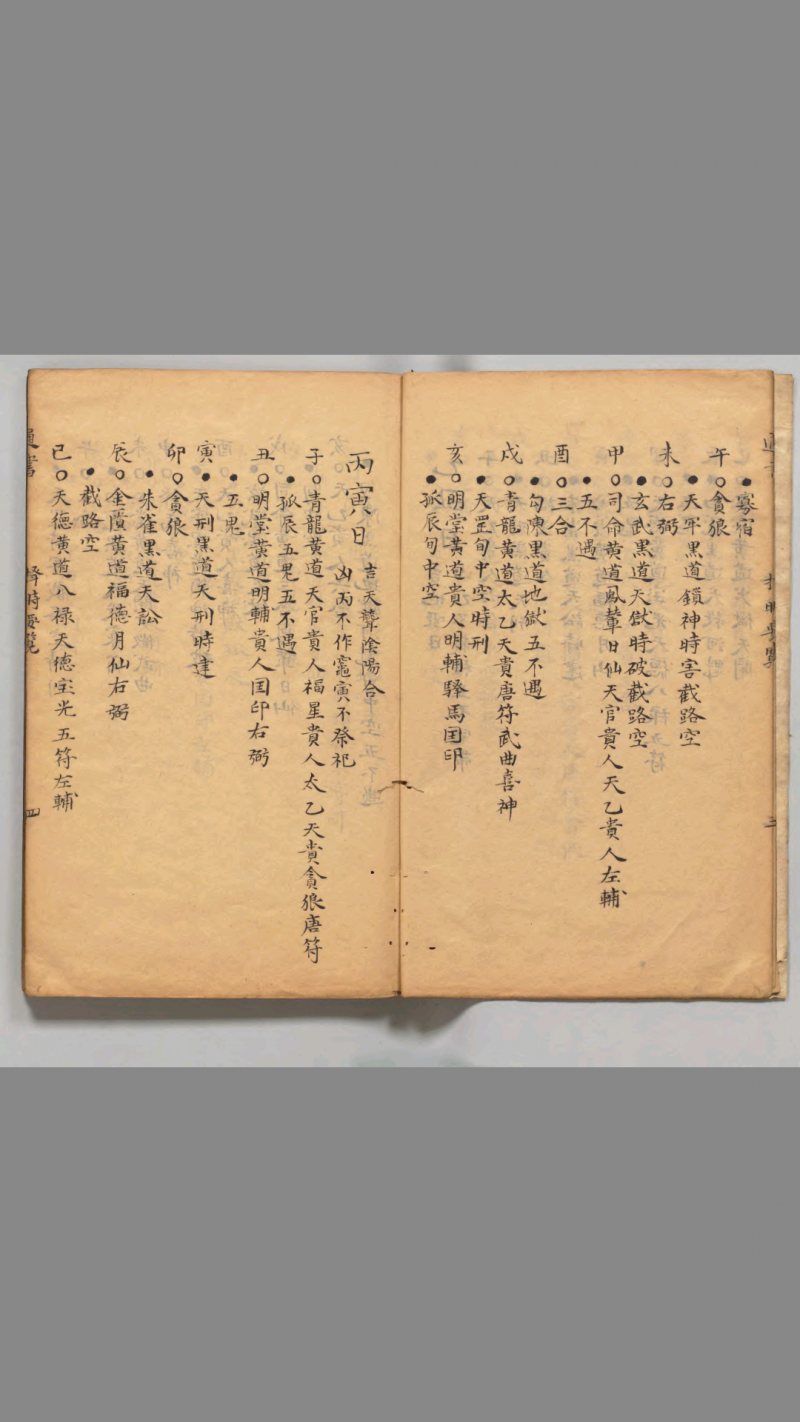 ●寡宿
午○貪狼
●天牢黒道鎖神時害截路空
未○右弼
●玄武黒道天獄時破截路空
申○司命黄道鳳輦日仙天官貴人天乙貴人左輔
●五不遇
酉○三合
●勾陳黒道地獄五不遇
戌○青龍黄道太乙天貴唐符武曲喜神
●天罡旬中空時刑
亥○明堂黄道貴人明輔驛馬国印
●孤辰旬中空
丙寅日
吉天聾陰陽合
凶丙不作竈寅不祭祀
子○青龍黄道天官貴人福星貴人太乙天貴貪狼唐符
●孤辰五鬼五不遇
丑○明堂黄道明輔貴人国印右弼
●五鬼
寅●天刑黒道天刑時建
卯○貪狼
●朱雀黒道天訟
辰○金匱黄道福德月仙右弼
●截路空
巳○天德黄道八禄天德宝光五符左輔
擇時要覽
四